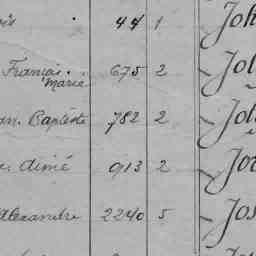 44 1 Joh
François Marie 675 2 Jol
Baptiste 782 2 Jol
Aimé 913 2 Jo
Alexandre 2240 5 Jos